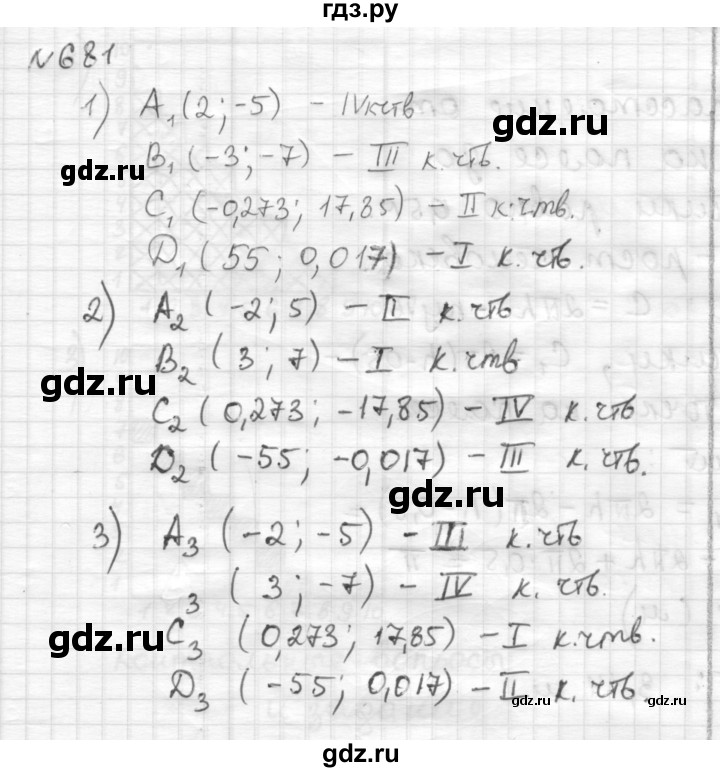 гдз.ру
№681
1) A₁(2; -5) - IV к чтв
B₁ (-3; -7) - III к. чтв.
gdz.ru
C₁ (-0,273; 17,85) - II к. чтв.
D₁ (55; 0,017) - I к. чтв.
gdz.ru
2) A₂ (-2; 5) - II к. чтв
B₂ (3; 7) - I к. чтв
gdz.ru
C₂ (0,273; -17,85) - IV к. чтв
D₂ (-55; -0,017) - III к. чтв.
gdz.ru
3) A₃ (-2; -5) - III к. чтв
₃ (3; -7) - IV к. чтв.
gdz.ru
C₃ (0,273; 17,85) - I к. чтв.
D₃ (-55; 0,017) - II к. чтв.
gdz.ru
gdz.ru
gdz.ru